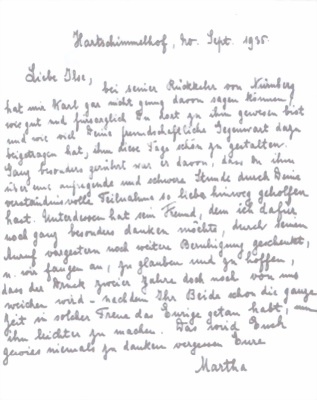 Hartschimmelhof, 20. Sept. 1935.
Liebe Ilse,
bei seiner Rückkehr von Nürnberg
hat mir Karl gar nicht genug davon sagen können,
wie gut und fürsorglich Du zu ihm gewesen bist
und wie viel Deine freundschaftliche Gegenwart dazu
beigetragen hat, ihm diese Tage schön zu gestalten.
Ganz besonders gerührt war er davon, dass Du ihm
über eine aufregende und schwere Stunde durch Deine
verständnisvolle Teilnahme so lieb hinweg geholfen
hast. Unterdessen hat sein Freund, dem ich dafür
noch ganz besonders danken möchte, durch seinen
Anruf vorgestern noch weiter Beruhigung geschenkt,
u. wir fangen an, zu glauben und zu hoffen,
dass der Druck zweier Jahre doch noch von uns
weichen wird – nachdem Ihr Beide schon die ganze
Zeit in solcher Treue das Eurige getan habt,
ihn leichter zu machen. Das wird Euch
gewiss niemals zu danken vergessen Eure
Martha